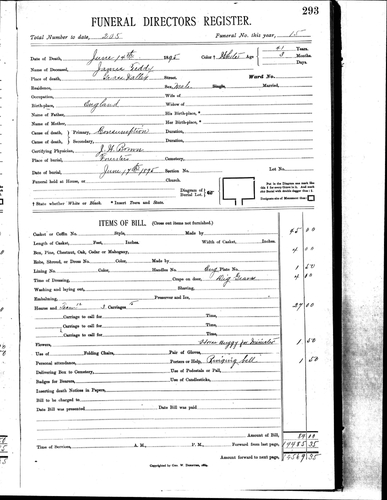 293
FUNERAL DIRECTORS REGISTER.
Total Number to date, 235 Funeral No. this year, 15
Date of Death, June 14th 1895 Color † White Age 41 Years. 3 Months. Days.
Name of Deceased, James Teddy
Place of death, Street. Word No.
Residence, Sex, Male Single, Married,
Occupation, Wife of
Birth-place, England Widow of
Name of Father, His Birth-place, *
Name of Mother, Her Birth-place, *
Cause of death, Primary, Consumption Duration,
Cause of death, Secondary, Duration,
Certifying Physician, J. H.
Place of burial, Cemetery,
Date of burial, June 17th 1895 Section No. Lot No.
Funeral held at House, or Church.
Diagram of Lot
Put in the Diagram one mark like this I for every Grave in it. And mark said Burial thus double dagger
Designate site of Monument thus
† State whether White or Black * Insert Town and State.
ITEMS OF BILL. (Cross out items not furnished.)
Casket or Coffin No. Style, Made by 45 00
Length of Casket, Feet, Inches. Width of Casket, Inches.
Box, Pine, Chestnut, Oak, Cedar or Mahogany, 4 00
Robe, Shroud, or Dress No. Color, Made by
Lining No. Color, Handles No. Eng Plate No. 1 50
Time of Dressing, Crape on door, Dig Grave 4 00
Washing and laying out, Shaving,
Embalming, Preserver and Ice,
Hearse and Team Carriages 5 27 00
Carriage to call for Time,
Carriage to call for Time,
Carriage to call for Time,
Flowers, Buggy for Minister 1 50
Use of Folding Chairs, Pair of Gloves,
Personal attendance, Porters or Help, Ringing bell 1 50
Delivering Box to Cemetery, Use of Pedestals or Pall,
Badges for Bearers, Use of Candlesticks,
Inserting death Notices in Papers,
Bill to be charged to
Date Bill was presented Date Bill was paid
Amount of Bill,
Time of Services, A. M., P. M. Forward from last page,
Amount forward to next page,
Copyrighted by Geo. W.